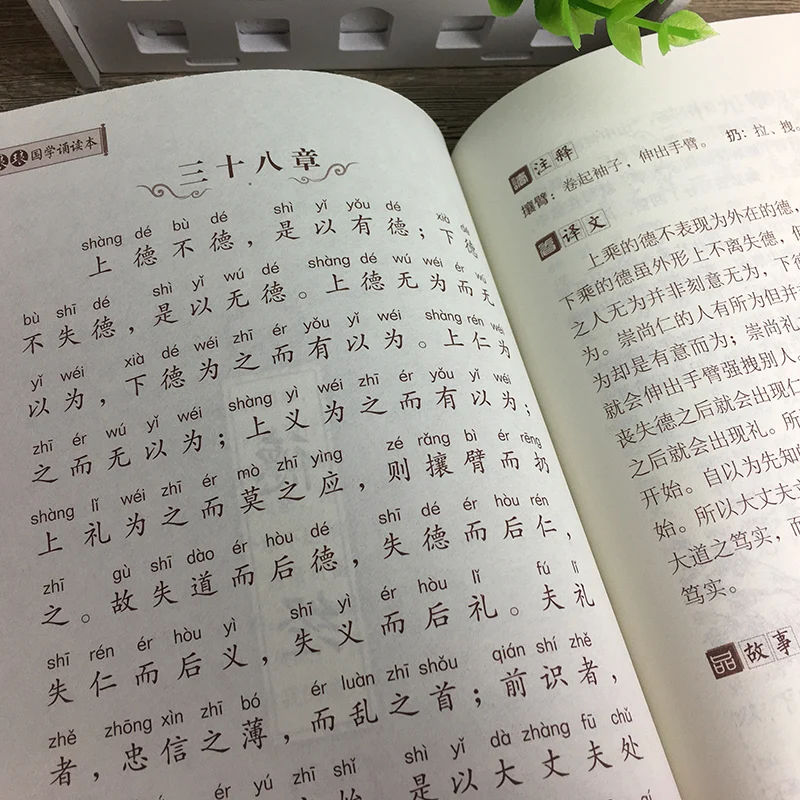 国学诵读本
三十八章
shàng dé bù dé shì yǐ yǒu dé xià dé
上德不德，是以有德；下德
bù shī dé shì yǐ wú dé shàng dé wú wéi ér wú
不失德，是以无德。上德无为而无
yǐ wéi xià dé wéi zhī ér yǒu yǐ wéi shàng rén wéi
以为，下德为之而有以为。上仁为
zhī ér wú yǐ wéi shàng yì wéi zhī ér yǒu yǐ wéi
之而无以为；上义为之而有以为；
shàng lǐ wéi zhī ér mò zhī yìng zé rǎng bì ér rēng
上礼为之而莫之应，则攘臂而扔
zhī gù shī dào ér hòu dé shī dé ér hòu rén
之。故失道而后德，失德而后仁，
shī rén ér hòu yì shī yì ér hòu lǐ fú lǐ
失仁而后义，失义而后礼。夫礼
zhě zhōng xìn zhī bó ér luàn zhī shǒu qián shí zhě
者，忠信之薄，而乱之首；前识者，
ér yú zhī shǐ shì yǐ dà zhàng fū chǔ
是以大丈夫处
注释
攘臂：卷起袖子，伸出手臂。 扔：拉、拽。
译文
上乘的德不表现为外在的德，
下乘的德虽外形上不离失德，
之人无为并非刻意无为，下德
为。崇尚仁的人有所为但并
为却是有意而为；崇尚礼
就会伸出手臂强拽别人。
丧失德之后就会出现仁
之后就会出现礼。所
开始。自以为先知的
始。所以大丈夫立
大道之笃实，而
笃实。
故事